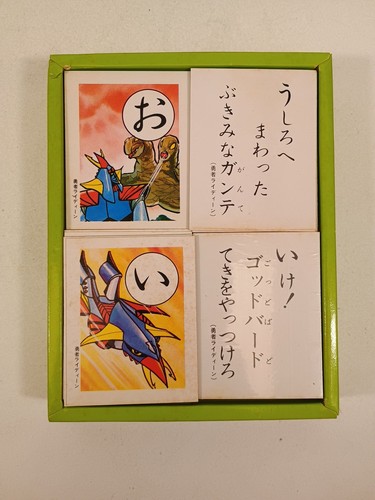 お
勇者ライディーン
うしろへ
まわった
ぶきみなガンテ
がんて
(勇者ライディーン)
い
勇者ライディーン
いけ!
ゴッドバード
ごっどばあど
てきをやっつけろ
(勇者ライディーン)